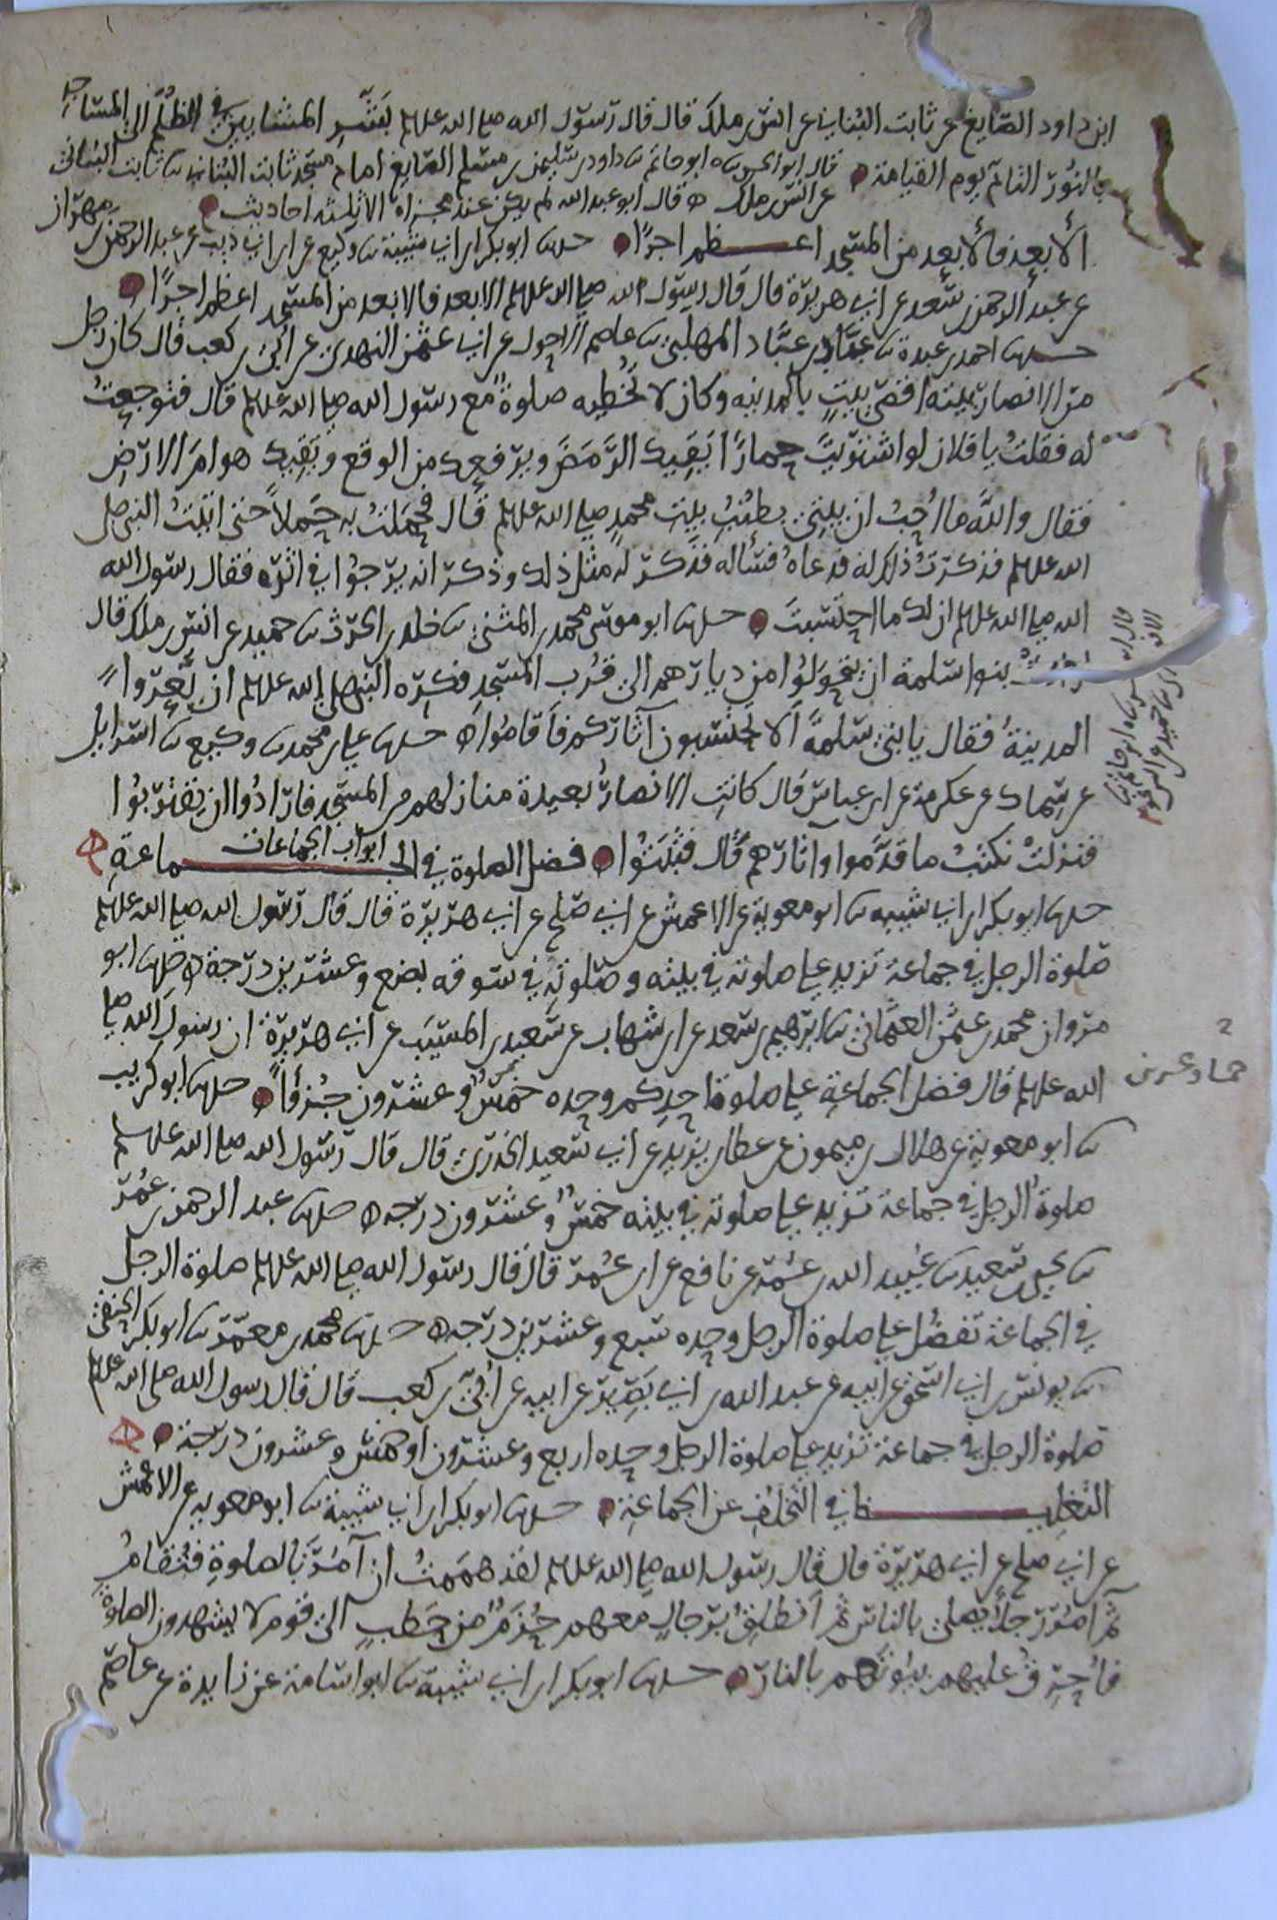 ابن داود الصايغ عن ثابت البناني عن انس بن ملك قال قال رسول الله صلى الله عليه وسلم بَشِّر المشايين في الظُّلَم الى المساجد
بالنُور التام يوم القيامة قال ابو الحسن ابو حاتم داود بن سليمن بن مسلم الصايغ امام مسجد ثابت البناني ثابت البناني
عن انس بن ملك قال ابو عبد الله لم يكن عند مجزاة الا ثلثة احاديث
الأبعد فالأبعد من المسجد اعظم اجرًا حدثنا ابو بكر ابن ابي شيبة وكيع عن ابن ابي ذيب عن عبد الرحمن بن مهران
عن عبد الرحمن بن سعد عن ابي هريرة قال قال رسول الله صلى الله عليه وسلم الابعد فالابعد من المسجد اعظم اجرًا
حدثنا احمد بن عبدة عبّاد بن عبّاد المهلبي عاصم الاحول عن ابي عثمن النهدي عن أبي بن كعب قال كان رجل
من الانصار بيته اقصى بيتٍ بالمدينه وكان لا تُخطيه صلوةٌ مع رسول الله صلى الله عليه وسلم قال فتوجعتُ
له فقلتُ يا فلان لو اشتريتَ حمارًا يَقيك الرَّمَضَ ويرفعك من الوقع ويَقيك هوامَ الارض
فقال والله ما أُحِبُ ان بيتي بطُنُبِ بيت محمدٍ صلى الله عليه وسلم قال فحملتُ به حَملاً حتى اتيتُ النبي صلى
الله عليه وسلم فذكرتُ ذلك له فدعاهُ فسأله فذكر له مثل ذلك وذكر انه يرجُوا في اثره فقال رسول الله
الله صلى الله عليه وسلم ان لك ما احتسبتَ حدثنا ابو موسى محمد بن المثنى خلد بن الحرث حميد عن انس بن ملك قال
ارادتْ بنوا سَلمة ان يتحولُوا من ديارهم الى قُرب المسجد فكره النبي صلى الله عليه وسلم ان يُعرّوا
المدينةُ فقال يا بني سَلمةَ الا تحتسبون آثاركم فأقامُوا حدثنا علي بن محمد وكيع اسرايل
عن سِماك عن عكرمة عن ابن عباس قال كانت الانصارُ بعيدة منازلهم من المسجد فارادُوا ان يقتربُوا
فنزلتْ نكتبُ ما قدَّموا وآثارهم قال فثبتُوا فضل الصلوة في الجماعة
ابواب الجماعات
حدثنا ابو بكر ابن ابي شيبه ابو معوية عن الاعمش عن ابي صلح عن ابي هريرة قال قال رسول الله صلى الله عليه وسلم
صلوة الرجل في جماعة تزيد على صلوته في بيته وصلوته في سوقه بضع وعشرين درجة حدثنا ابو
مروان محمد بن عثمن العثماني ابرهيم بن سعد عن ابن شهاب عن سَعيد بن المسيَب عن ابي هريرة ان رسول الله صلى
الله عليه وسلم قال فضل الجماعةِ على صلوة احدِكم وحده خمسٌ وعشرون جُزءًا حدثنا ابو كريب
ابو معوية عن هلال بن ميمون عن عطا بن يزيد عن ابي سَعيدٍ الخدري قال قال رسول الله صلى الله عليه وسلم
صلوةُ الرجل في جماعة تزيد على صلوته في بيته خمسٌ وعشرون درجه حدثنا عبد الرحمن بن عمر
يحيى بن سعيد عُبيد الله بن عُمر عن نافع عن ابن عُمر قال قال رسول الله صلى الله عليه وسلم صلوة الرجل
في الجماعة تفضُل على صلوة الرجل وحده سبع وعشرين درجه حدثنا محمد بن معمّر ابو بكر الحنفي
يونس بن ابي اسحق عن ابيه عن عبد الله بن ابي بَصير عن ابيه عن أُبيّ بن كعب قال قال رسول الله صلى الله عليه وسلم
صلوة الرجل في جماعة تزيد على صلوة الرجل وحده اربع وعشرون او خمس وعشرون درجة
التغليظ في التخلفِ عن الجماعة حدثنا ابو بكر ابن ابي شيبة ابو معويه عن الاعمش
عن ابي صلح عن ابي هريرة قال قال رسول الله صلى الله عليه وسلم لقد هممتُ ان آمُرَ بالصلوةِ فتُقامُ
ثم آمُرَ رجلاً يصلي بالناس ثم أنطلقُ برجالٍ معهم حُزَمٌ من حَطبٍ الى قومٍ لا يشهدون الصلوةَ
فأُحرّقُ عليهم بيُوتَهم بالنار حدثنا ابو بكر ابن ابي شيبة ابو اسامة عن زايدة عن عاصم
حماد عن